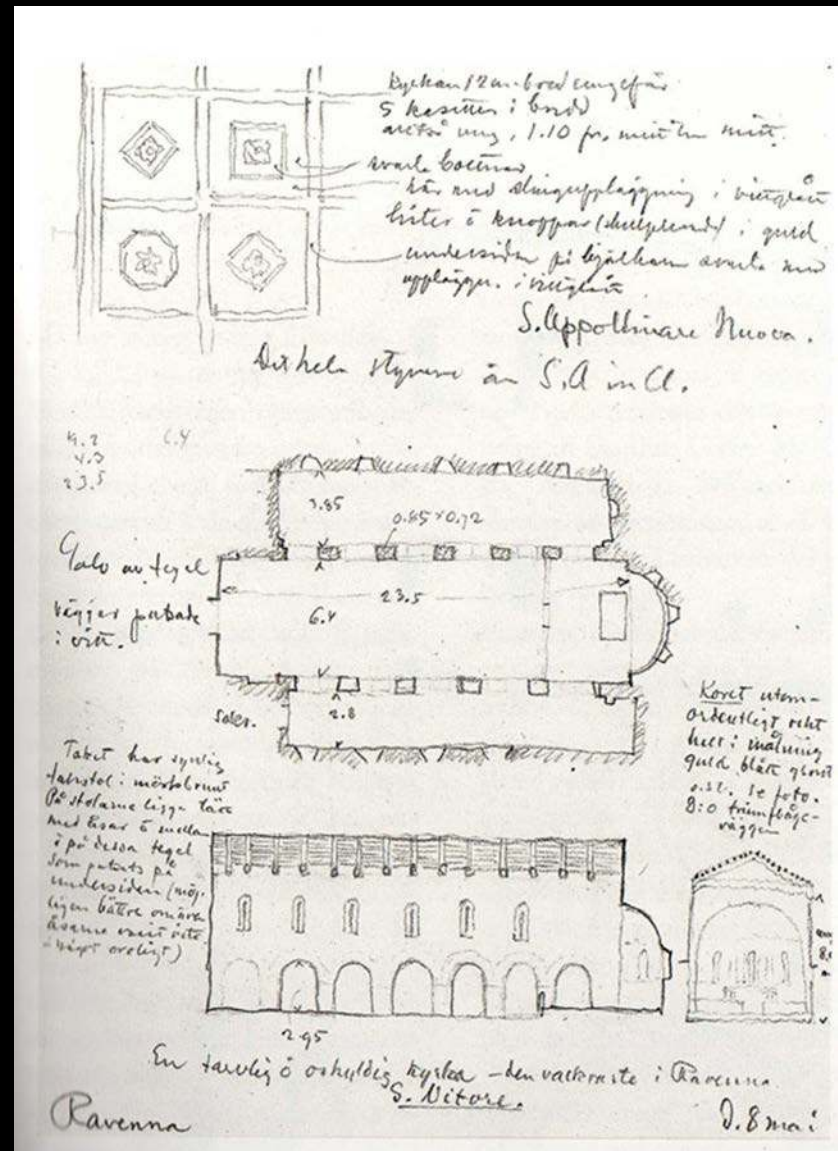 Kyrkan 12 m bred ungefär
5 kasetter i bredd
alltså ung. 1.10 fr. mitt till mitt.
svarta bottnar
här med slinguppläggning i
lister o knoppar i guld
undersidan på bjälkarna svarta med
uppläggn. i
S. Appollinare Nuova.
Det hela styvare än S.A in Cl.
4.2
4.3
23.5
6.4
3.85
0.85 × 0.72
Golv av tegel
väggar putsade
i vitt.
23.5
6.4
2.8
Koret utom-
ordentligt rikt
helt i målning
guld blått grönt
o.s.v. se foto.
D:o triumfbåge-
väggen
Taket har synlig
takstol i mörkbrunt
På stolarna ligga
med åsar o mellan
o på dessa tegel
som putsats på
undersidan (möj-
ligen bättre
åsarna
något oroligt)
2.95
En tarvlig o oskyldig kyrka – den vackraste i Ravenna.
S. Vitore.
Ravenna
D. 8 maj